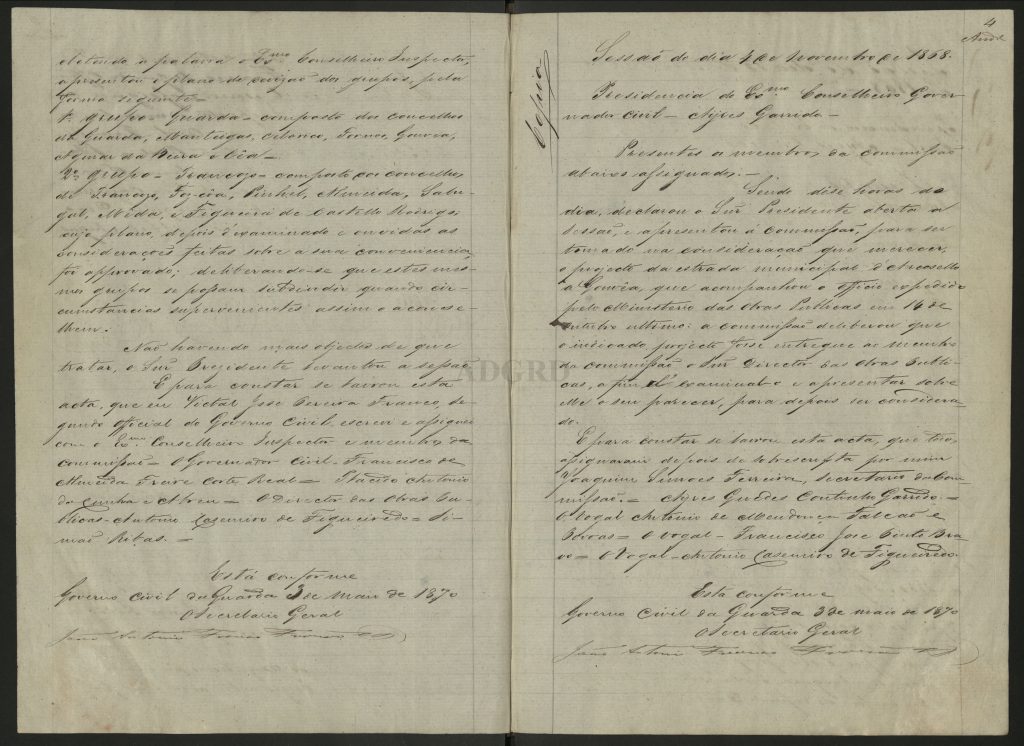 obtendo a palavra o Exmo Conselheiro Inspector,
apresentou o plano de divizão dos grupos, pela
forma seguinte =
1º grupo = Guarda = composto dos concelhos
da Guarda, Manteigas, Gouvêa,
Aguiar da Beira e Cêa =
2º grupo = Trancozo = composto dos concelhos
de Trancozo, Foz-côa, Pinhel, Almeida, Sabu-
gal, Mêda, e Figueira de Castello Rodrigo,
cujo plano, depois d'examinado e ouvidas as
considerações feitas sobre a sua conveniencia,
foi approvado; deliberando-se que estes mes-
mos grupos se possam subdividir quando cir-
cumstancias supervenientes assim o aconse-
lhem.
Não havendo mais objectos de que
tratar, o Snr Presidente levantou a sessão.
E para constar se lavrou esta
acta, que eu Victor José Pereira Franco, se-
gundo official do Governo Civil, escrevi e assignei
com o Exmo Conselheiro Inspector e membros da
commissão = O Governador Civil - Francisco de
Almeida Freire Corte Real = Placido Antonio
da Cunha e Abreu = O Director das Obras Pu-
blicas - Antonio Casemiro de Figueiredo = Si-
mão Ribas. =
Está conforme
Governo Civil da Guarda 3 de Maio de 1870
O Secretario Geral
João Antonio Franco
4
Copia
Sessão do dia 4 de Novembro de 1868.
Presidencia do Exmo Conselheiro Gover-
nador Civil - Ayres Garrido =
Presentes os membros da commissão
abaixo assignados. =
Sendo dose horas do
dia, declarou o Snr Presidente aberta a
sessão, e apresentou á Commissão, para ser
tomado na consideração que merecer,
o projecto da estrada municipal d'Arcosello
a Gouvêa, que acompanhou o officio expedido
pelo Ministerio das Obras Publicas em 14 de
outubro ultimo: a commissão deliberou que
o indicado projecto fosse entregue ao membro
da commissão, o Snr Director das Obras Publi-
cas, a fim d'o examinar e apresentar sobre
elle o seu parecer, para depois ser considera-
do.
E para constar se lavrou esta acta, que todos
assignaram depois de sobscripta por mim
Joaquim Simões Ferreira, Secretario da Com-
missão. = Ayres Guedes Coutinho Garrido. =
O Vogal Antonio de Mendonça Falcão e
Povoas = O Vogal - Francisco José Pinto Bra-
vo = O Vogal - Antonio Casemiro de Figueiredo.
Está conforme
Governo Civil da Guarda 3 de maio de 1870
O Secretario Geral
João Antonio Franco
ADGRD